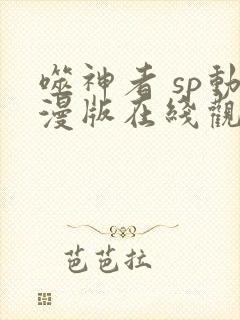 噬神者 sp動
漫版在綫觀
芭芭拉